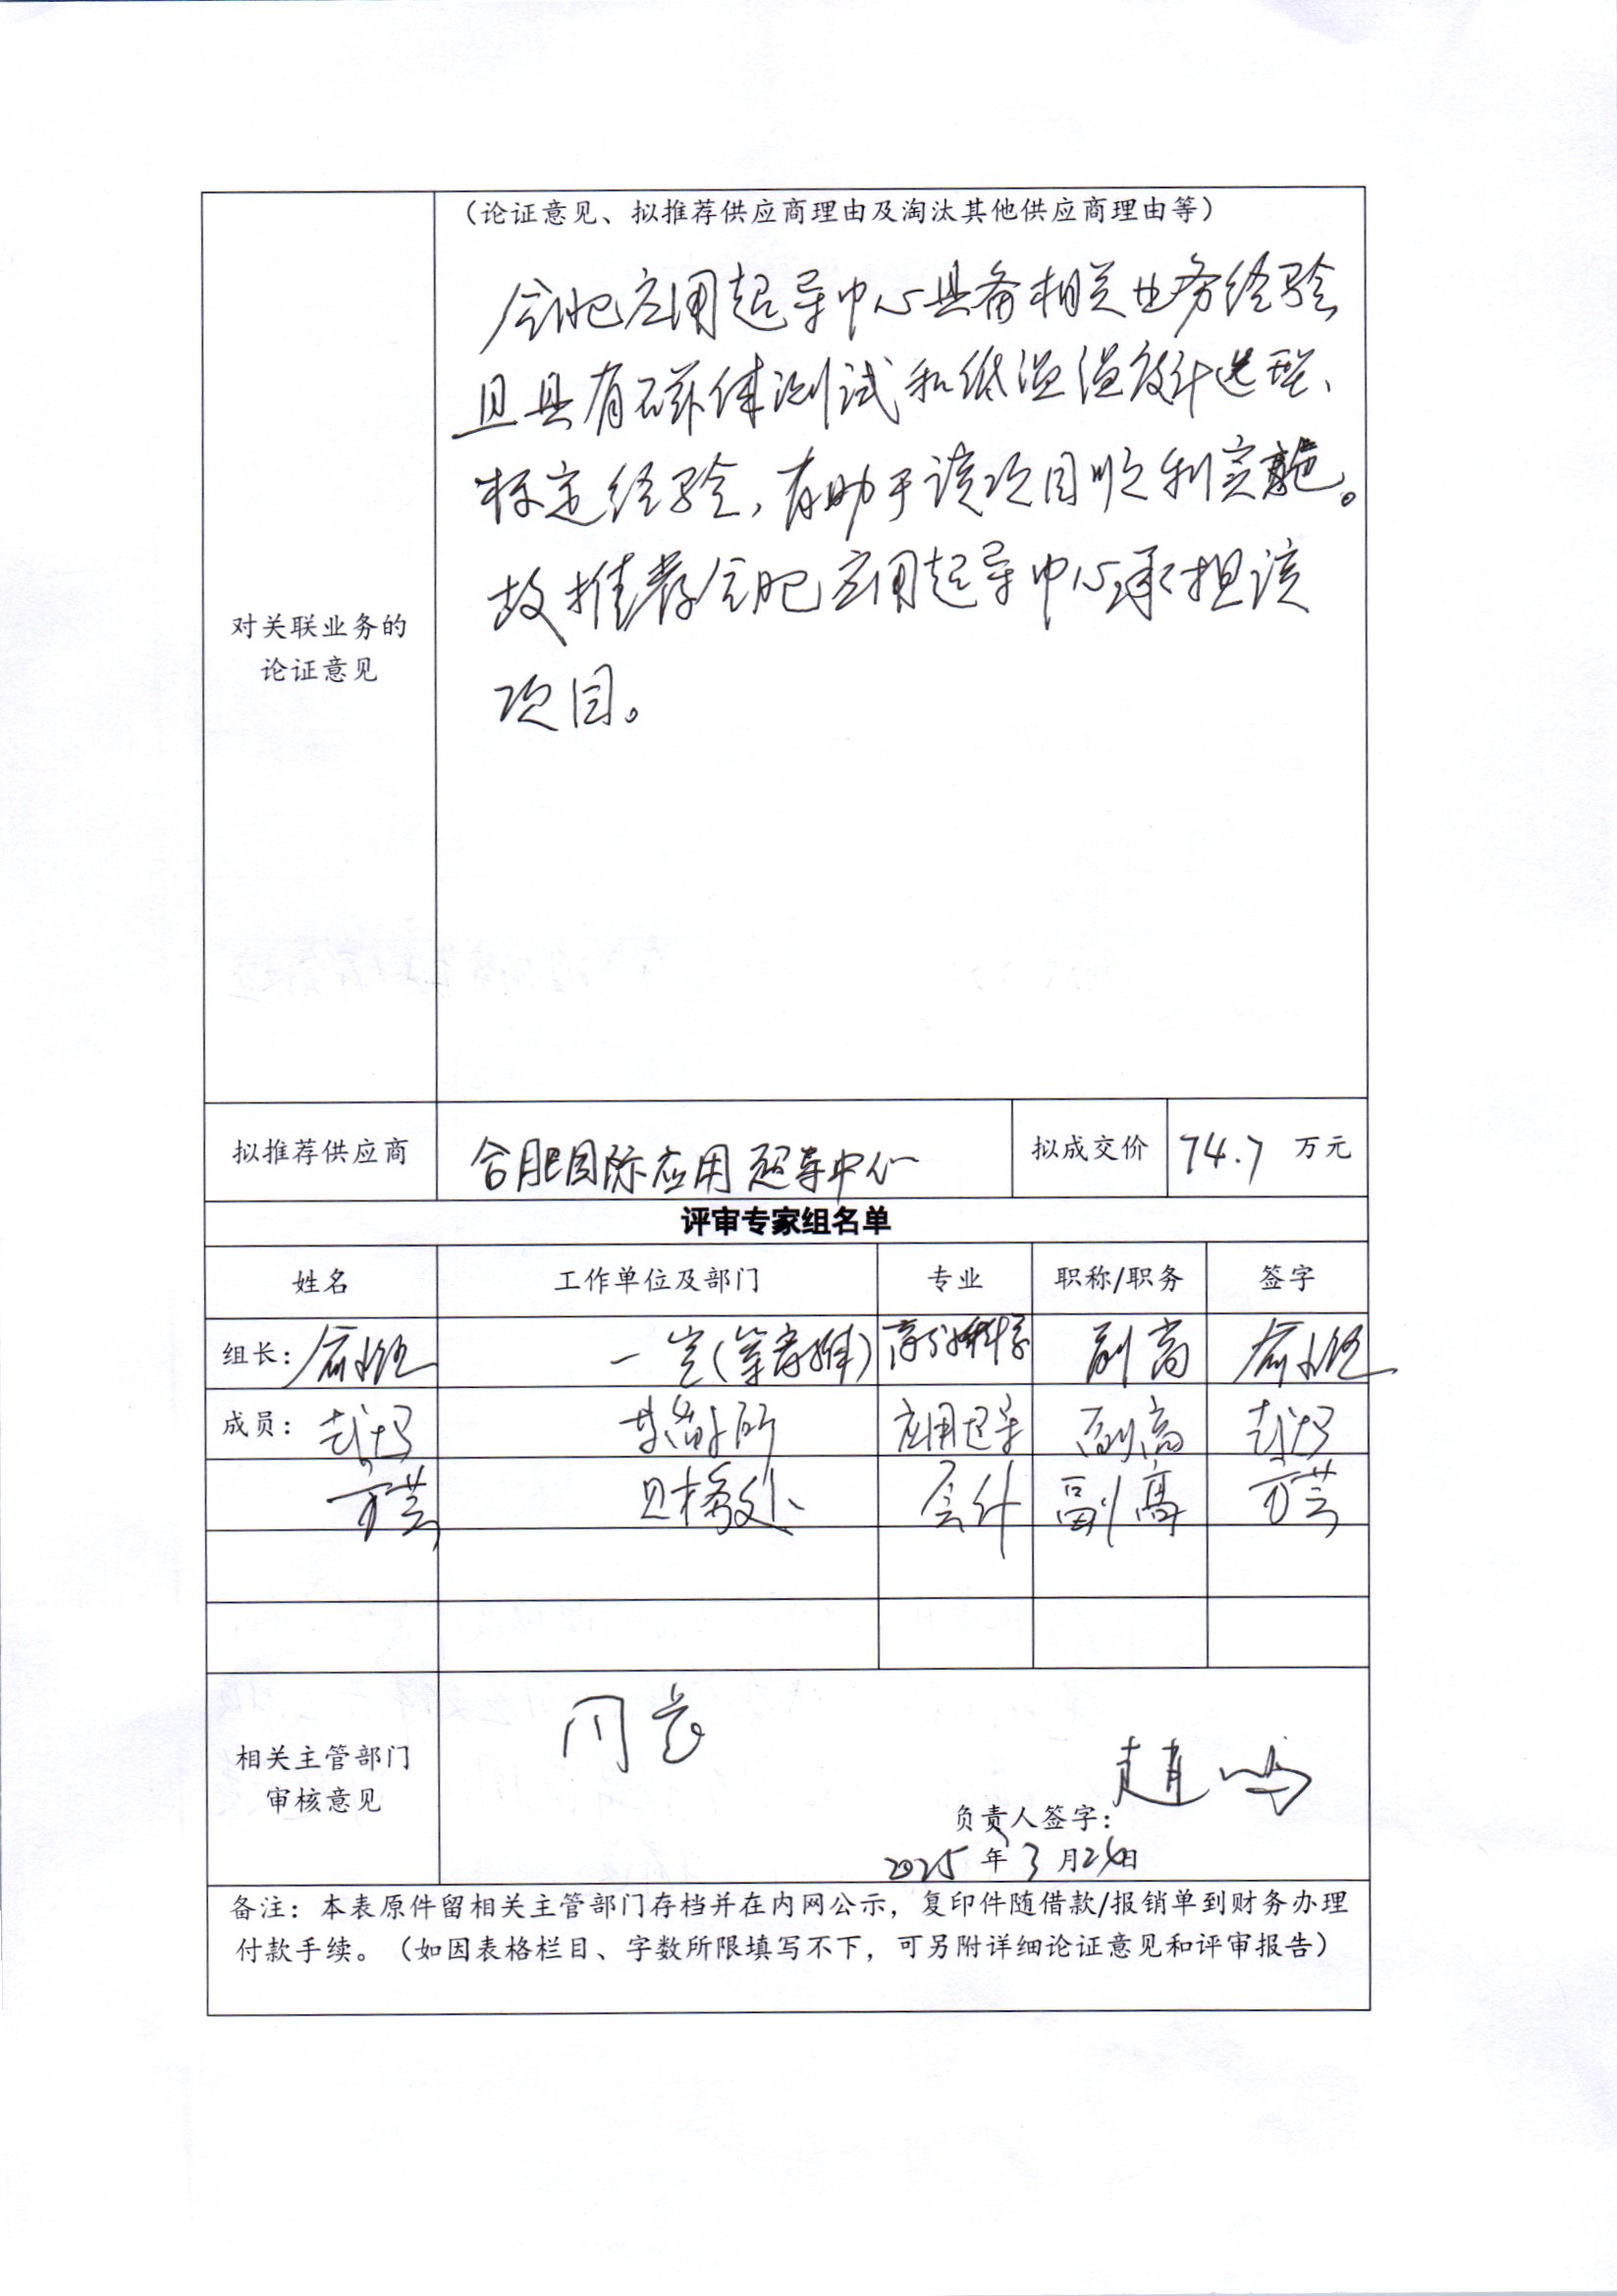 （论证意见、拟推荐供应商理由及淘汰其他供应商理由等）
合肥应用超导中心具备相关业务经验
且具有磁体测试和低温温度计选型、
标定经验，有助于该项目顺利实施。
故推荐合肥应用超导中心承担该
项目。
对关联业务的
论证意见
拟推荐供应商 合肥国际应用超导中心 拟成交价 74.7 万元
评审专家组名单
姓名 工作单位及部门 专业 职称/职务 签字
组长： 一室 副高
成员： 应用超导 副高
方芸 财务处 会计 副高 方芸
相关主管部门
审核意见
同意
负责人签字：
2025 年 3 月 26 日
备注：本表原件留相关主管部门存档并在内网公示，复印件随借款/报销单到财务办理
付款手续。（如因表格栏目、字数所限填写不下，可另附详细论证意见和评审报告）